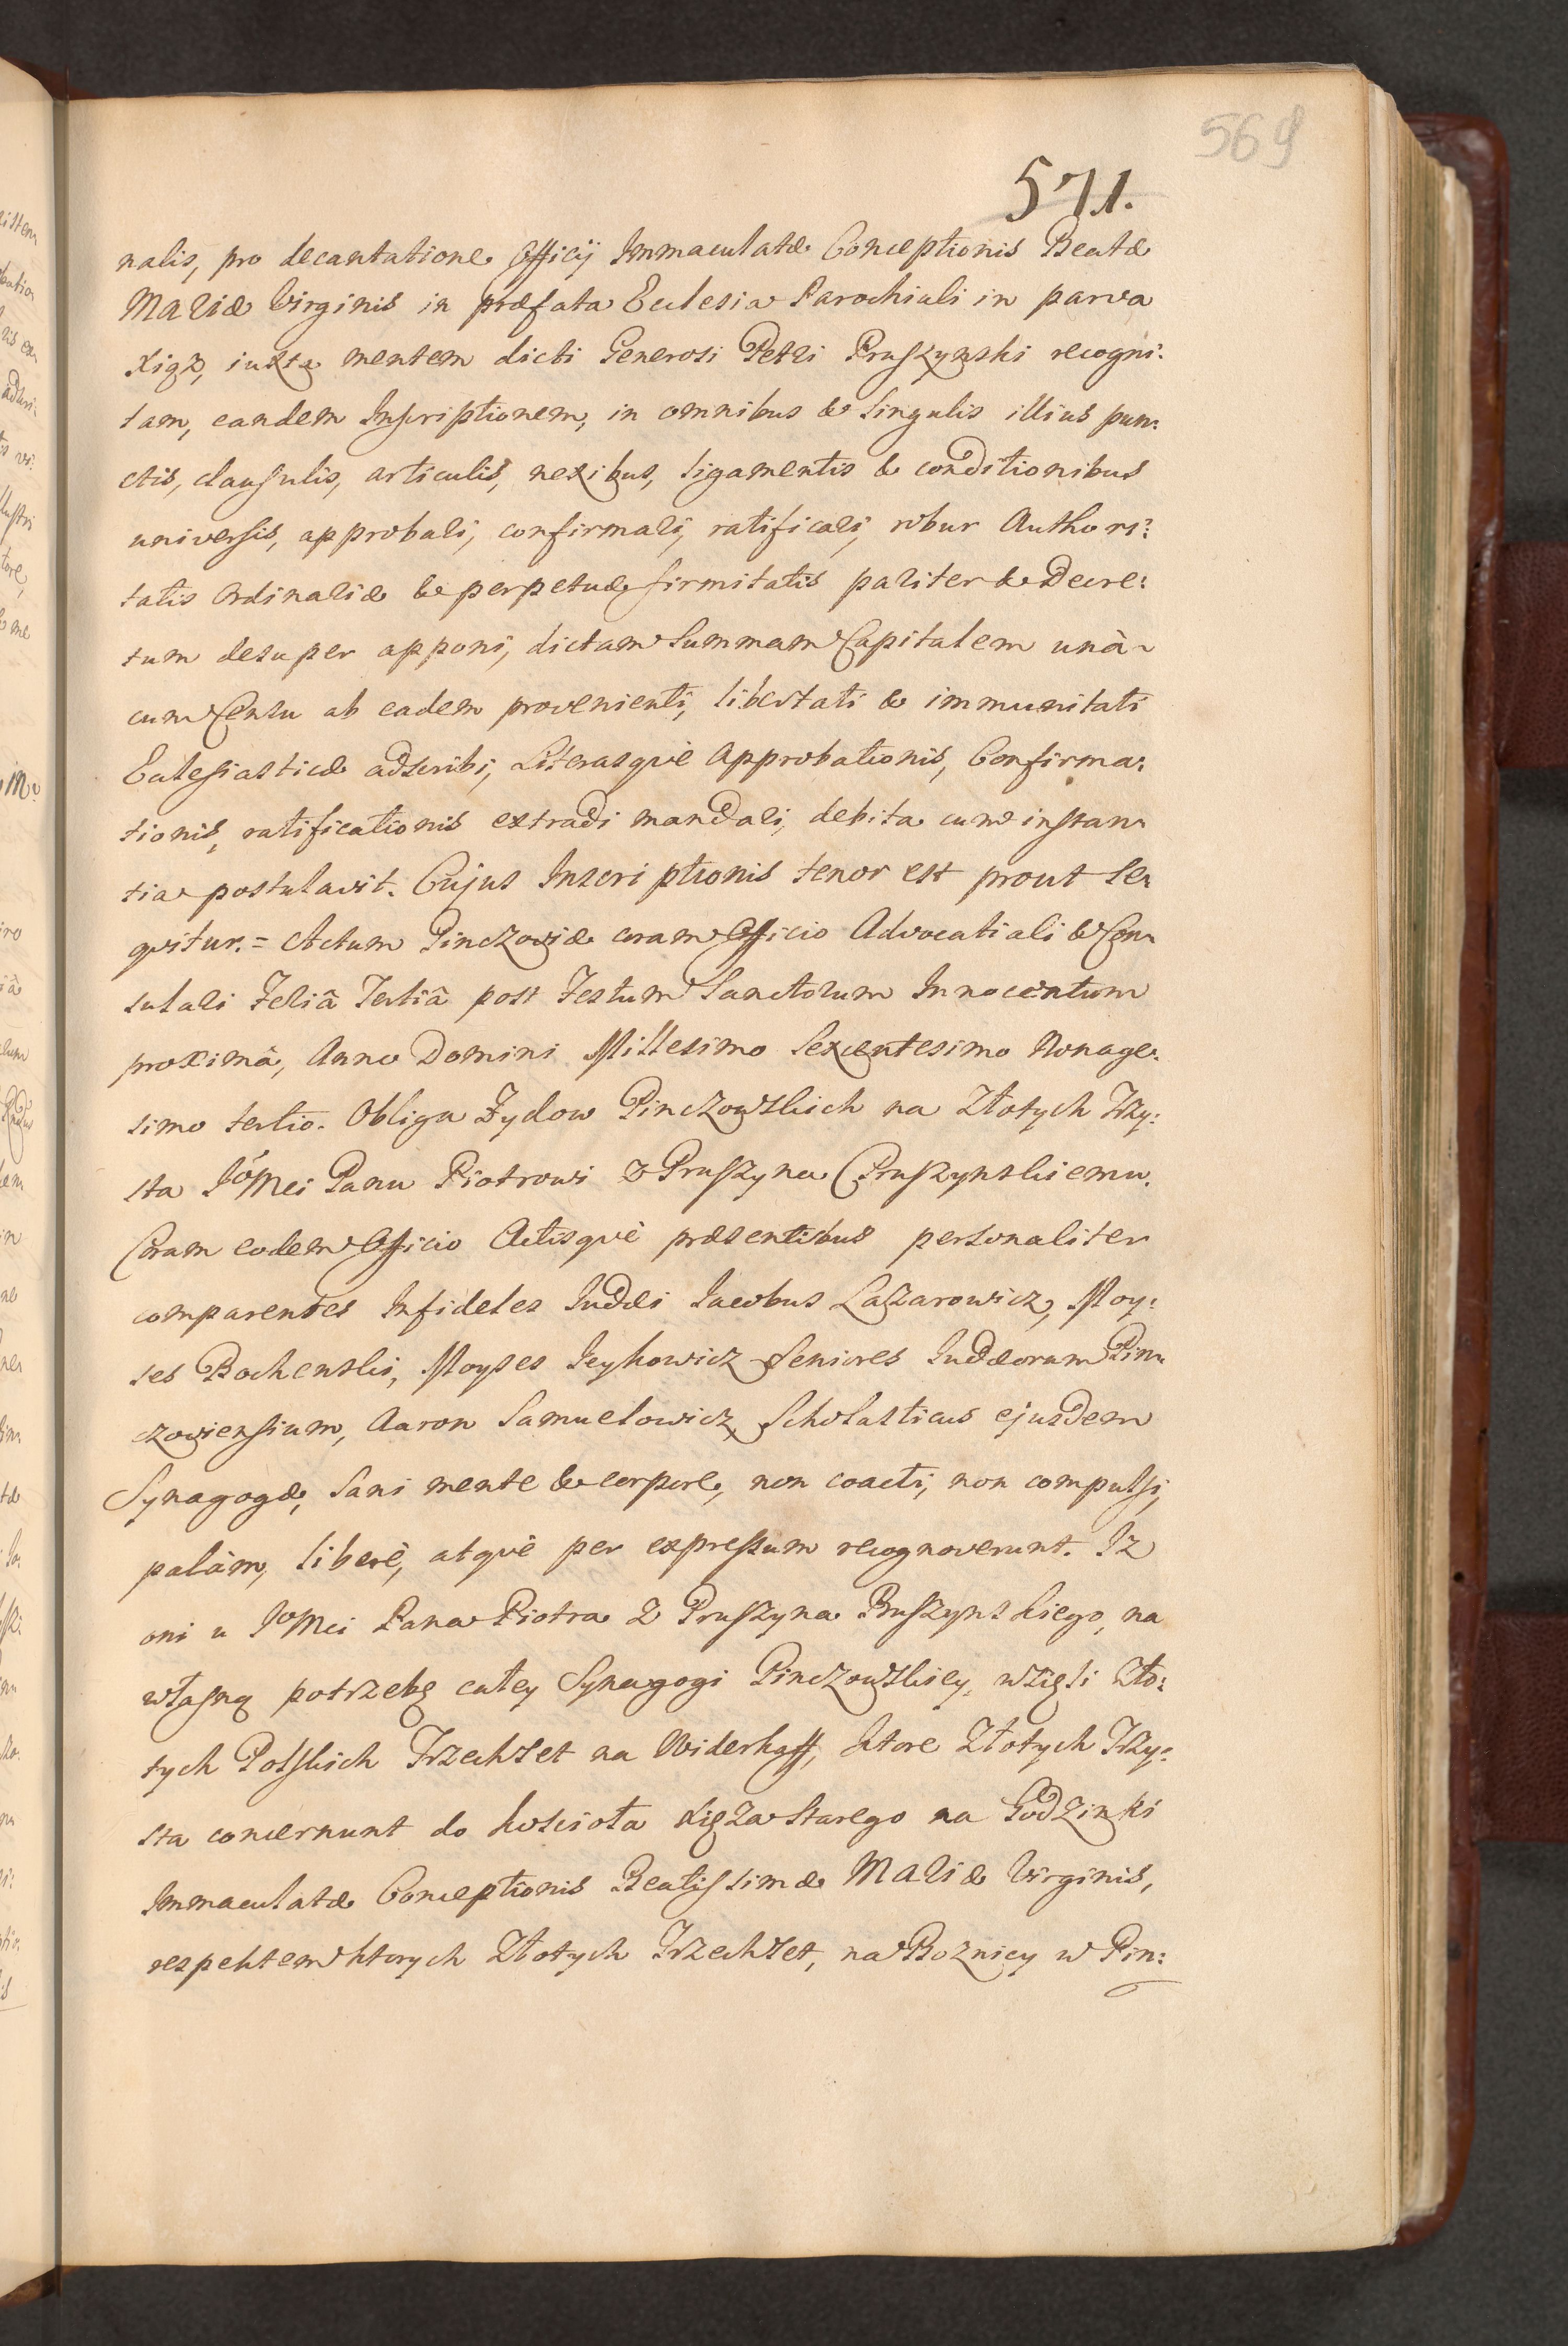 569
571.
nalis, pro decantatione Officij Immaculatæ Conceptionis Beatæ
MARIÆ Virginis in præfata Ecclesia Parochiali in parva
Xigż, iuxta mentem dicti Generosi Petri Pruszynski recogni:
tam, eandem Inscriptionem, in omnibus & singulis illius pun:
ctis, clausulis, articulis, nexibus, ligamentis & conditionibus
universis, approbari, confirmari, ratificari, robur Authori:
tatis Ordinariæ & perpetuæ firmitatis pariter & Decre:
tum desuper apponi, dictam Summam Capitalem unà
cum Censu ab eadem provenienti, libertati & immunitati
Ecclesiasticæ adscribi, Literasquè Approbationis, Confirma:
tionis, ratificationis extradi mandari, debita cum instan:
tia postulavit. Cujus Inscriptionis tenor est prout se:
qvitur. = Actum Pinczoviæ coram Officio Advocatiali & Con:
sulari Feriâ Tertiâ post Festum Sanctorum Innocentum
proximâ, Anno Domini Millesimo Sexcentesimo Nonage:
simo tertio. Obliga Zydow Pinczowskich na Złotych Trzy:
sta JoMci Panu Piotrowi z Pruszyna Pruszynskiemu.
Coram eodem Officio Actisquè præsentibus personaliter
comparentes Infideles Judæi Jacobus Lazarowicz, Moy:
ses Bochenski, Moyses Jcykowicz Seniores Judæorum Pin:
czoviensium, Aaron Samuelowicz Scholasticus ejusdem
Synagogæ, sani mente & corpore, non coacti, non compulsi,
palàm, liberè, atquè per expressum recognoverunt. Iz
oni u JoMci Pana Piotra z Pruszyna Pruszynskiego, na
własną potrzebę całey Synagogi Pinczowskiey, wzięli Zło:
tych Polskich Trzechset na Widerkaff, ktore Złotych Trzy:
sta concernunt do kosciola Xięża Starego na Godzinki
Immaculatæ Conceptionis Beatissimæ MARIÆ Virginis,
respektem ktorych Złotych Trzechset, na Boznicy w Pin: